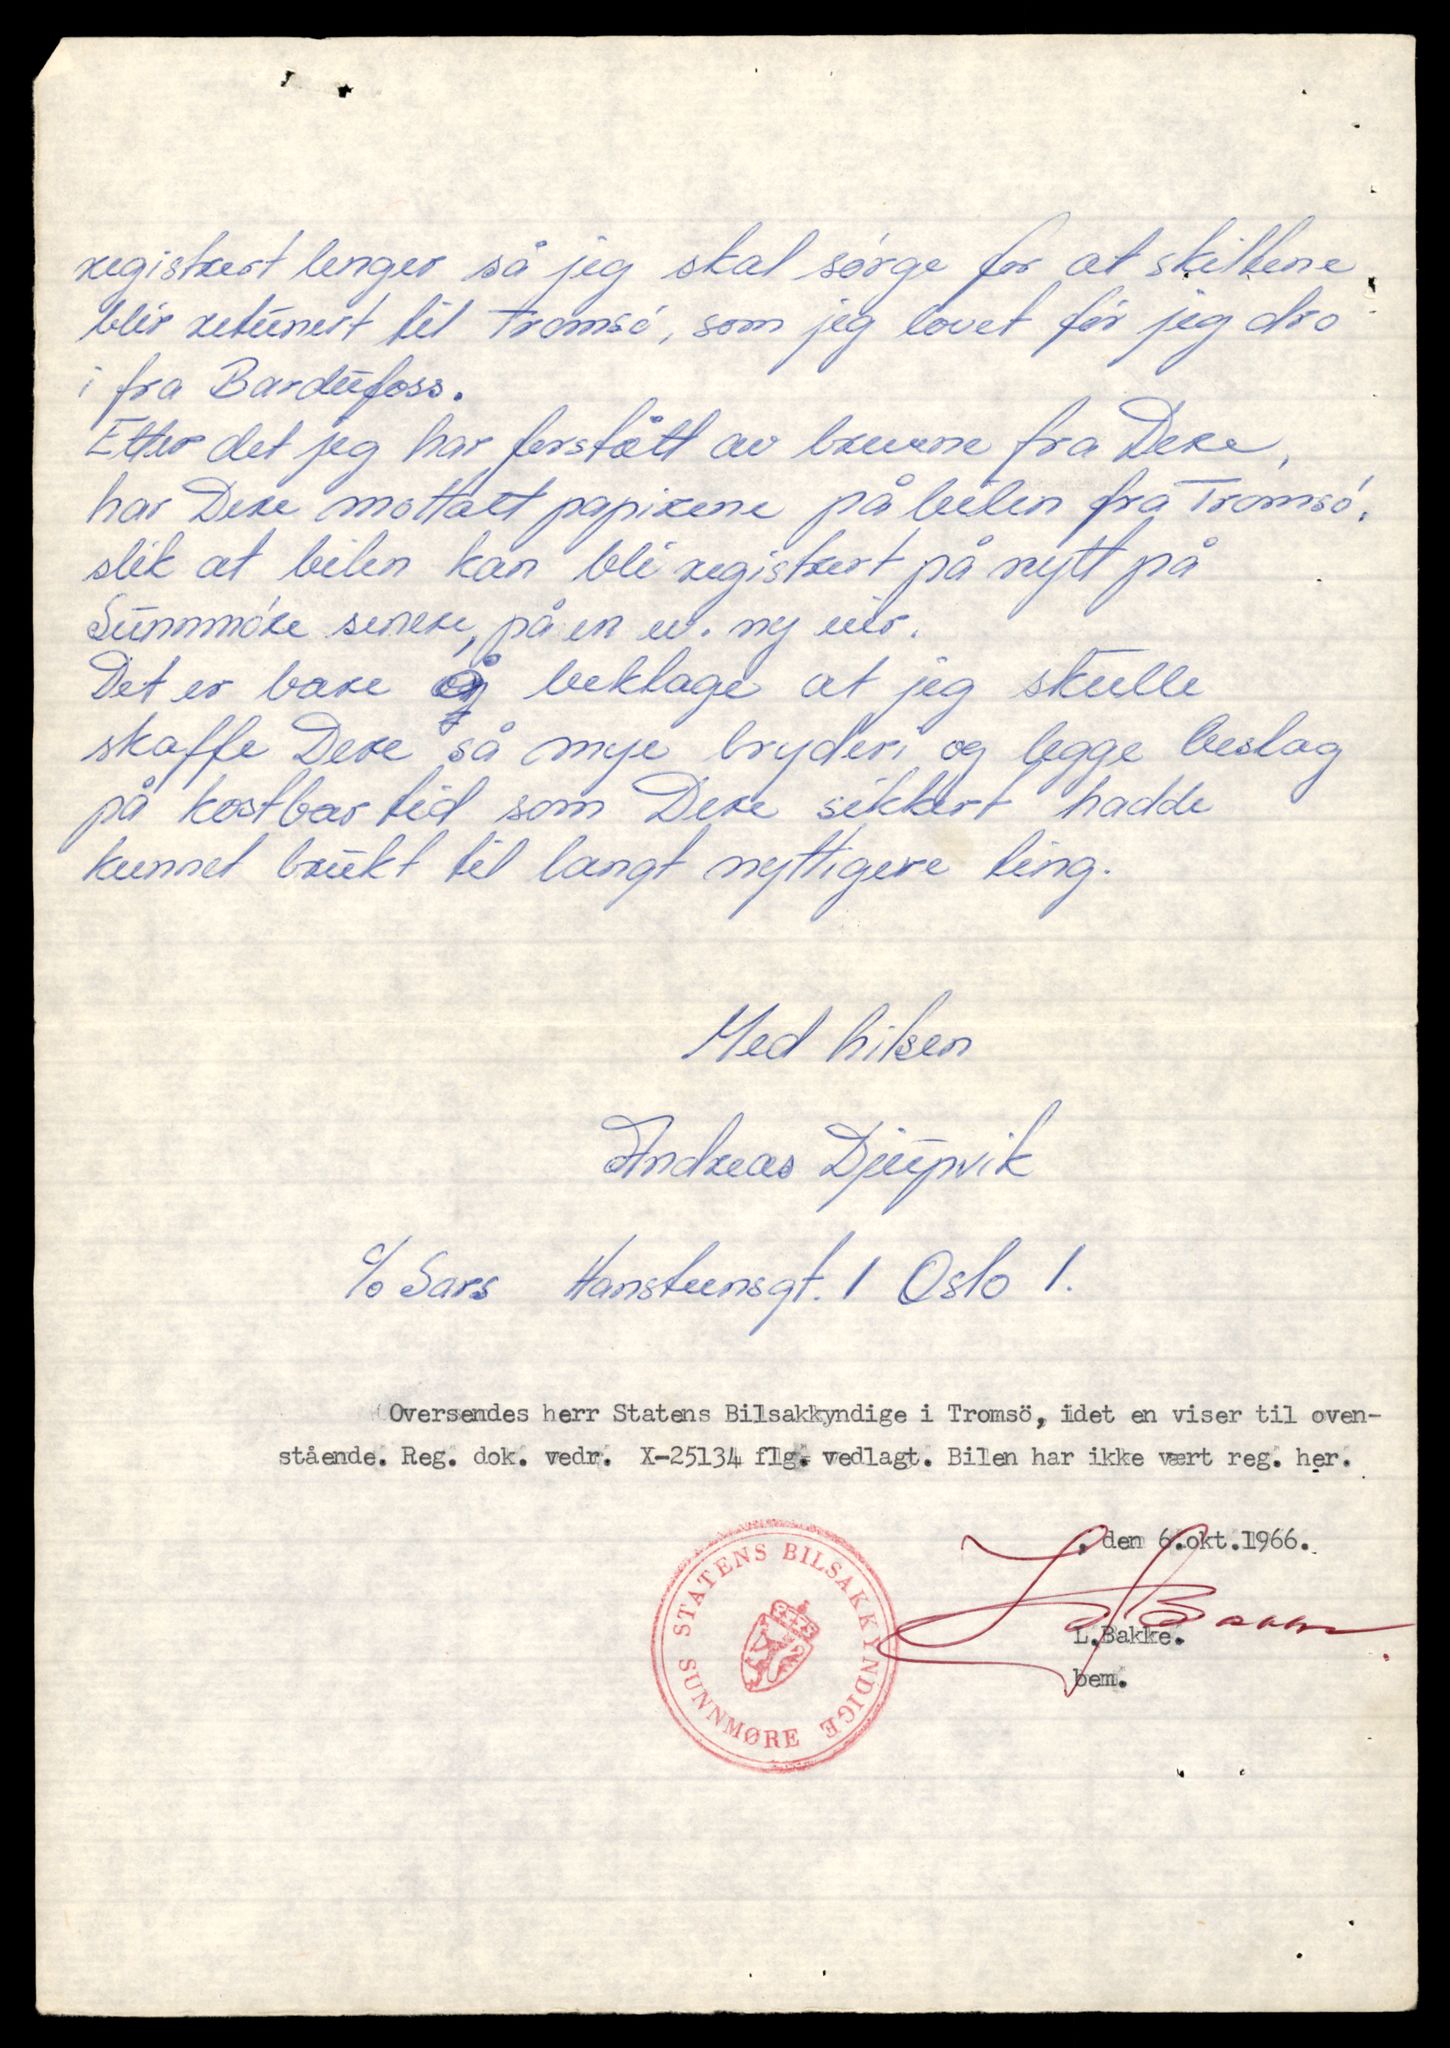 registrert lenger så jeg skal sórge for at skiltene
blir retunert til Tromsó, som jeg lovet fór jeg dro
i fra Bardufoss.
Etter det jeg har forstått av brevene fra Dere,
har Dere mottatt papirene på bilen fra Tromsó,
slik at bilen kan bli registrert på nytt på
Sunnmóre senere, på en ev. ny eier.
Det er bare å beklage at jeg skulle
skaffe Dere så mye bryderi og legge beslag
på kostbar tid som Dere sikkert hadde
kunnet brukt til langt nyttigere ting.
Med hilsen
Andreas Djupvik
c/o Sars Hansteensgt. 1 Oslo 1.
Oversendes herr Statens Bilsakkyndige i Tromsö, idet en viser til oven-
stående. Reg. dok. vedr. X-25134 flg. vedlagt. Bilen har ikke vært reg. her.
, den 6.okt.1966.
L Bakke
L.Bakke.
bem.
STATENS BILSAKKYNDIGE
SUNNMØRE